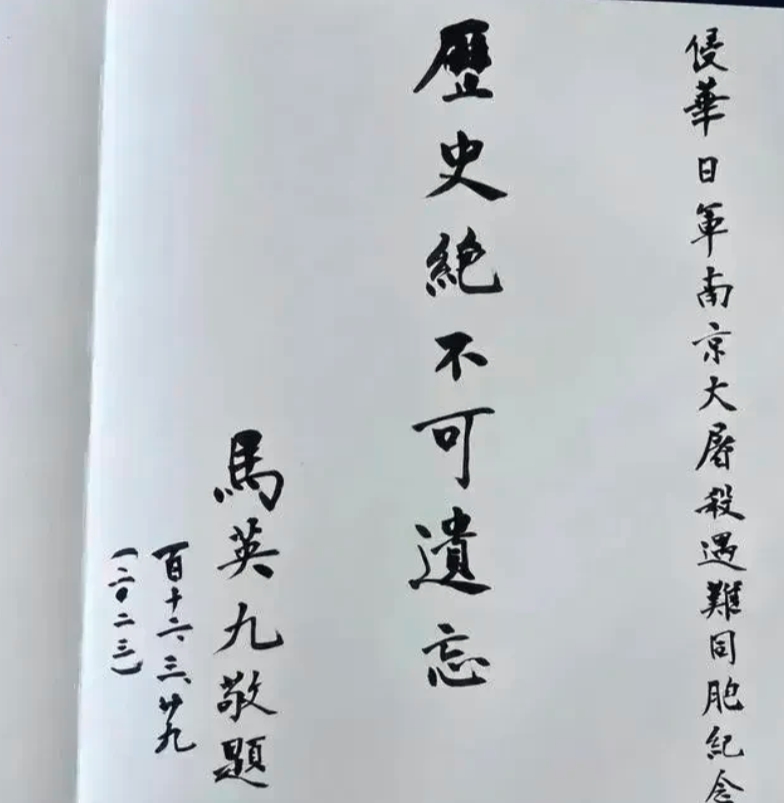 侵華日軍南京大屠殺遇難同胞紀念
歷史絕不可遺忘
馬英九敬題
百十二、三、廿九
(二〇二三)